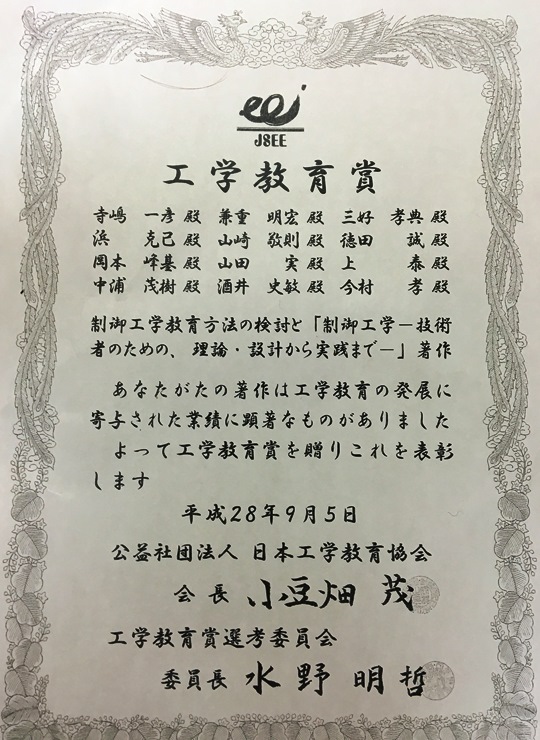 JSEE
工学教育賞
寺嶋 一彦 殿 兼重 明宏 殿 三好 孝典 殿
浜 克己 殿 山崎 敬則 殿 徳田 誠 殿
岡本 峰基 殿 山田 実 殿 上 泰 殿
中浦 茂樹 殿 酒井 史敏 殿 今村 孝 殿
制御工学教育方法の検討と「制御工学―技術
者のための、理論・設計から実践まで―」著作
あなたがたの著作は工学教育の発展に
寄与された業績に顕著なものがありました
よって工学教育賞を贈りこれを表彰
します
平成28年9月5日
公益社団法人 日本工学教育協会
会長 小豆畑 茂
工学教育賞選考委員会
委員長 水野 明哲